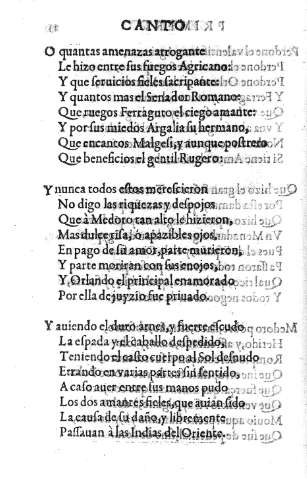 CANTO
O quantas amenazas arrogante
Le hizo entre sus fuegos Agricano:
Y que seruicios fieles sacripante:
Y quantos mas el Senador Romano:
Que ruegos Ferraguto el ciego amante:
Y por sus miedos Argalia su hermano,
Que encantos Malgesi, y aunque postrero
Que beneficios el gentil Rugero:
Y nunca todos estos merescieron
No digo las riquezas y despojos
Que à Medoro tan alto le hizieron,
Mas dulce risa, ò apazibles ojos,
En pago de su amor, parte murieron,
Y parte morirán con sus enojos,
Y Orlando el principal enamorado
Por ella de juyzio fue priuado.
Y auiendo el duro arnes, y fuerte escudo
La espada y el caballo despedido,
Teniendo el casto cuerpo al Sol desnudo
Errando en varias partes sin sentido,
A caso auer entre sus manos pudo
Los dos amantes fieles, que auián sido
La causa de su daño, y libremente
Passauan à las Indias del Oriente.